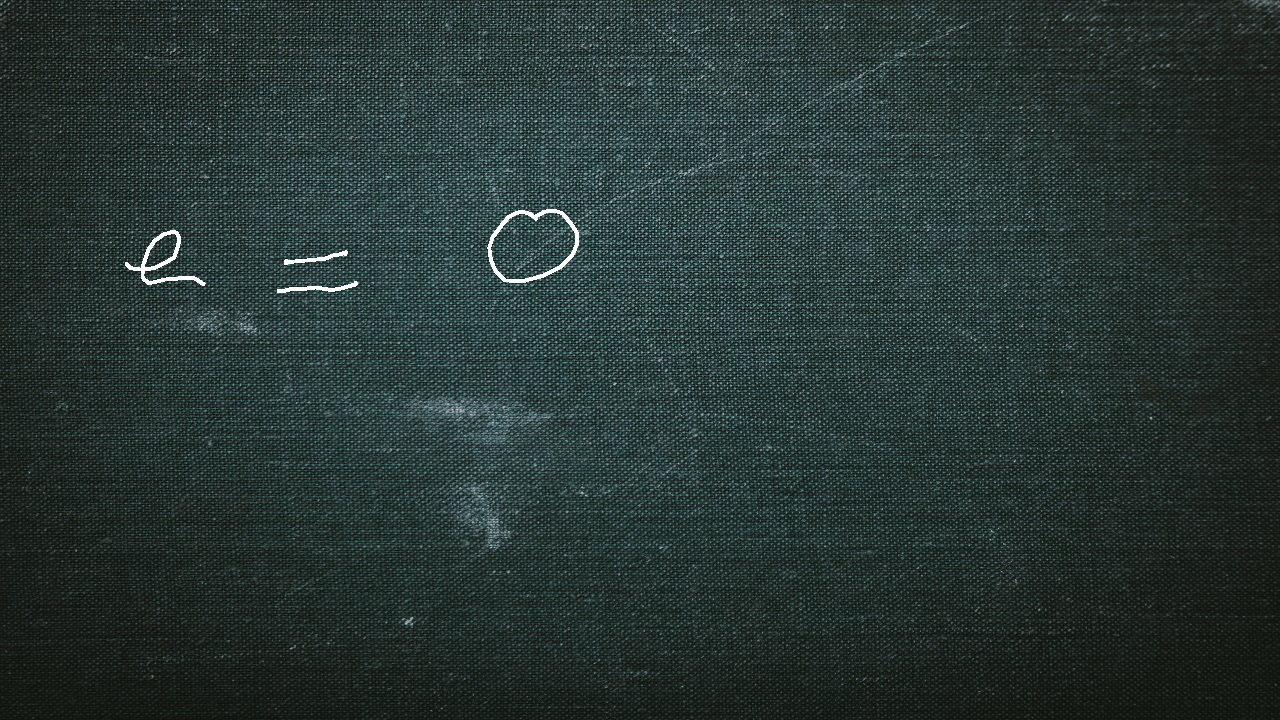 e = 0